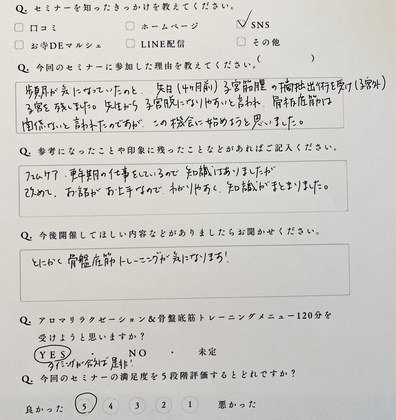 Q. セミナーを知ったきっかけを教えてください。
口コミ ホームページ SNS
お寺DEマルシェ LINE配信 その他
Q. 今回のセミナーに参加した理由を教えてください。( )
頻尿が気になっていたのと、先日(4ヶ月前)子宮筋腫の摘出術を受け(子宮外)
子宮を残しました。先生から子宮脱になりやすいと言われ、骨盤底筋は
関係ないと言われたのですが、この機会に始めようと思いました。
Q. 参考になったことや印象に残ったことなどがあればご記入ください。
フェムケア・更年期の仕事をしているので知識はありましたが
改めて、お話がお上手なので、わかりやすく、知識がまとまりました。
Q. 今後開催してほしい内容などがありましたらお聞かせください。
とにかく骨盤底筋トレーニングが気になります!
Q. アロマリラクゼーション&骨盤底筋トレーニングメニュー120分を
受けようと思いますか?
YES ・ NO ・ 未定
タイミングが合えば是非!
Q. 今回のセミナーの満足度を5段階評価するとどれですか?
良かった 5 4 3 2 1 悪かった